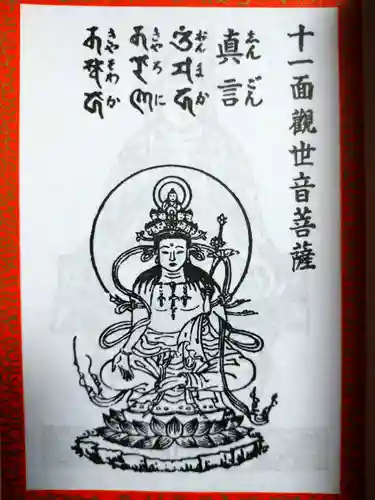 十一面觀世音菩薩
真言
しん ごん
おん まか
きや ろ に
きや そわ か